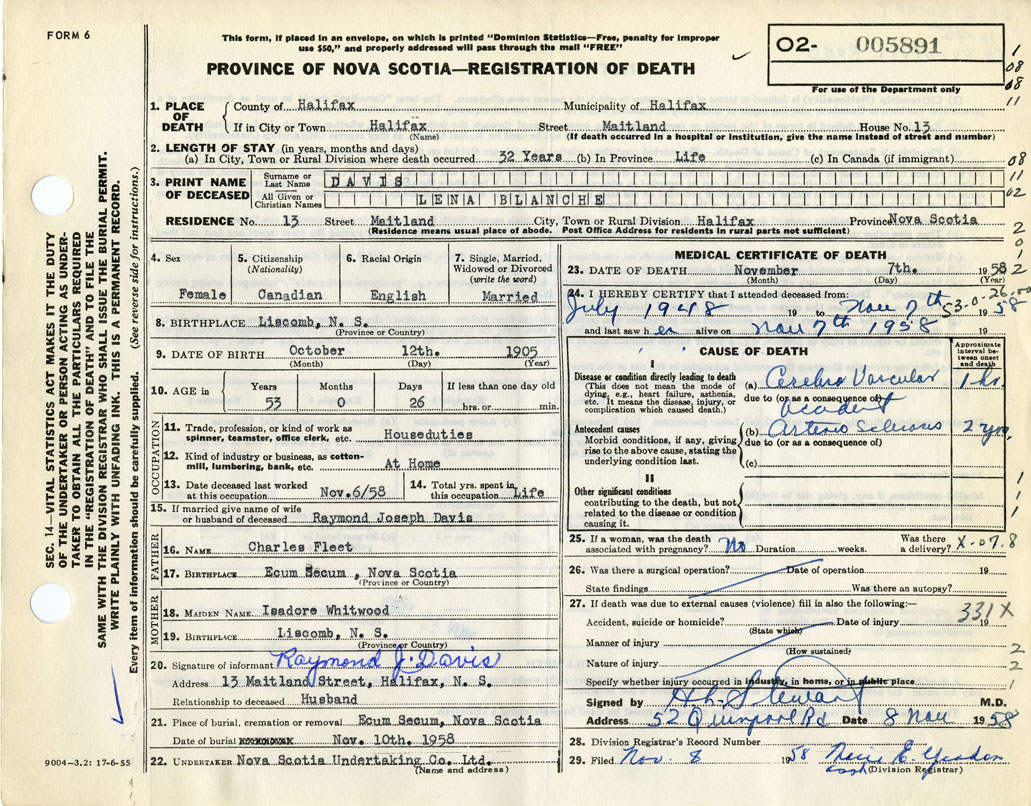 FORM 6
This form, if placed in an envelope, on which is printed "Dominion Statistics—Free, penalty for improper
use $50," and properly addressed will pass through the mail "FREE"
PROVINCE OF NOVA SCOTIA—REGISTRATION OF DEATH
02- 005891
For use of the Department only
SEC. 14—VITAL STATISTICS ACT MAKES IT THE DUTY
OF THE UNDERTAKER OR PERSON ACTING AS UNDER-
TAKER TO OBTAIN ALL THE PARTICULARS REQUIRED
IN THE "REGISTRATION OF DEATH" AND TO FILE THE
SAME WITH THE DIVISION REGISTRAR WHO SHALL ISSUE THE BURIAL PERMIT.
WRITE PLAINLY WITH UNFADING INK. THIS IS A PERMANENT RECORD.
Every item of information should be carefully supplied. (See reverse side for instructions.)
1. PLACE OF DEATH
County of Halifax Municipality of Halifax
If in City or Town Halifax Street Maitland House No. 13
(Name) (If death occurred in a hospital or institution, give the name instead of street and number)
2. LENGTH OF STAY (in years, months and days)
(a) In City, Town or Rural Division where death occurred 32 Years (b) In Province Life (c) In Canada (if immigrant)
3. PRINT NAME OF DECEASED
Surname or Last Name DAVIS
All Given or Christian Names LENA BLANCHE
RESIDENCE No. 13 Street Maitland City, Town or Rural Division Halifax Province Nova Scotia
(Residence means usual place of abode. Post Office Address for residents in rural parts not sufficient)
4. Sex
Female
5. Citizenship
(Nationality)
Canadian
6. Racial Origin
English
7. Single, Married,
Widowed or Divorced
(write the word)
Married
8. BIRTHPLACE Liscomb, N. S.
(Province or Country)
9. DATE OF BIRTH October 12th. 1905
(Month) (Day) (Year)
10. AGE in
Years Months Days If less than one day old
53 0 26 hrs. or min.
OCCUPATION
11. Trade, profession, or kind of work as
spinner, teamster, office clerk, etc. Houseduties
12. Kind of industry or business, as cotton-
mill, lumbering, bank, etc. At Home
13. Date deceased last worked
at this occupation Nov.6/58
14. Total yrs. spent in
this occupation Life
15. If married give name of wife
or husband of deceased Raymond Joseph Davis
FATHER
16. NAME Charles Fleet
17. BIRTHPLACE Ecum Secum , Nova Scotia
(Province or Country)
MOTHER
18. MAIDEN NAME Isadore Whitwood
19. BIRTHPLACE Liscomb, N. S.
(Province or Country)
20. Signature of informant Raymond J. Davis
Address 13 Maitland Street, Halifax, N. S.
Relationship to deceased Husband
21. Place of burial, cremation or removal Ecum Secum, Nova Scotia
Date of burial Nov. 10th. 1958
22. UNDERTAKER Nova Scotia Undertaking Co. Ltd.
(Name and address)
9004-3.2: 17-6-55
MEDICAL CERTIFICATE OF DEATH
23. DATE OF DEATH November 7th. 1958
(Month) (Day) (Year)
24. I HEREBY CERTIFY that I attended deceased from:
July 1948 19 to Nov 7th 1958
53-0-26.00
and last saw h er alive on Nov 7th 1958 19
CAUSE OF DEATH
Approximate
interval be-
tween onset
and death
I
Disease or condition directly leading to death
(This does not mean the mode of
dying, e.g., heart failure, asthenia,
etc. It means the disease, injury, or
complication which caused death.)
(a) Cerebro Vascular 1 hr.
due to (or as a consequence of)
accident
Antecedent causes
Morbid conditions, if any, giving
rise to the above cause, stating the
underlying condition last.
(b) Arterio Sclerosis 2 yrs.
due to (or as a consequence of)
(c)
II
Other significant conditions
contributing to the death, but not
related to the disease or condition
causing it.
25. If a woman, was the death
associated with pregnancy? No Duration weeks.
Was there
a delivery? X-07.8
26. Was there a surgical operation? Date of operation 19
State findings Was there an autopsy?
27. If death was due to external causes (violence) fill in also the following:—
331X
Accident, suicide or homicide? Date of injury 19
(State which)
Manner of injury
(How sustained)
Nature of injury
Specify whether injury occurred in industry, in home, or in public place
Signed by H.L. Stewart M.D.
Address 52 Quinpool Rd Date 8 Nov 1958
28. Division Registrar's Record Number
29. Filed Nov. 8 1958
(Division Registrar)